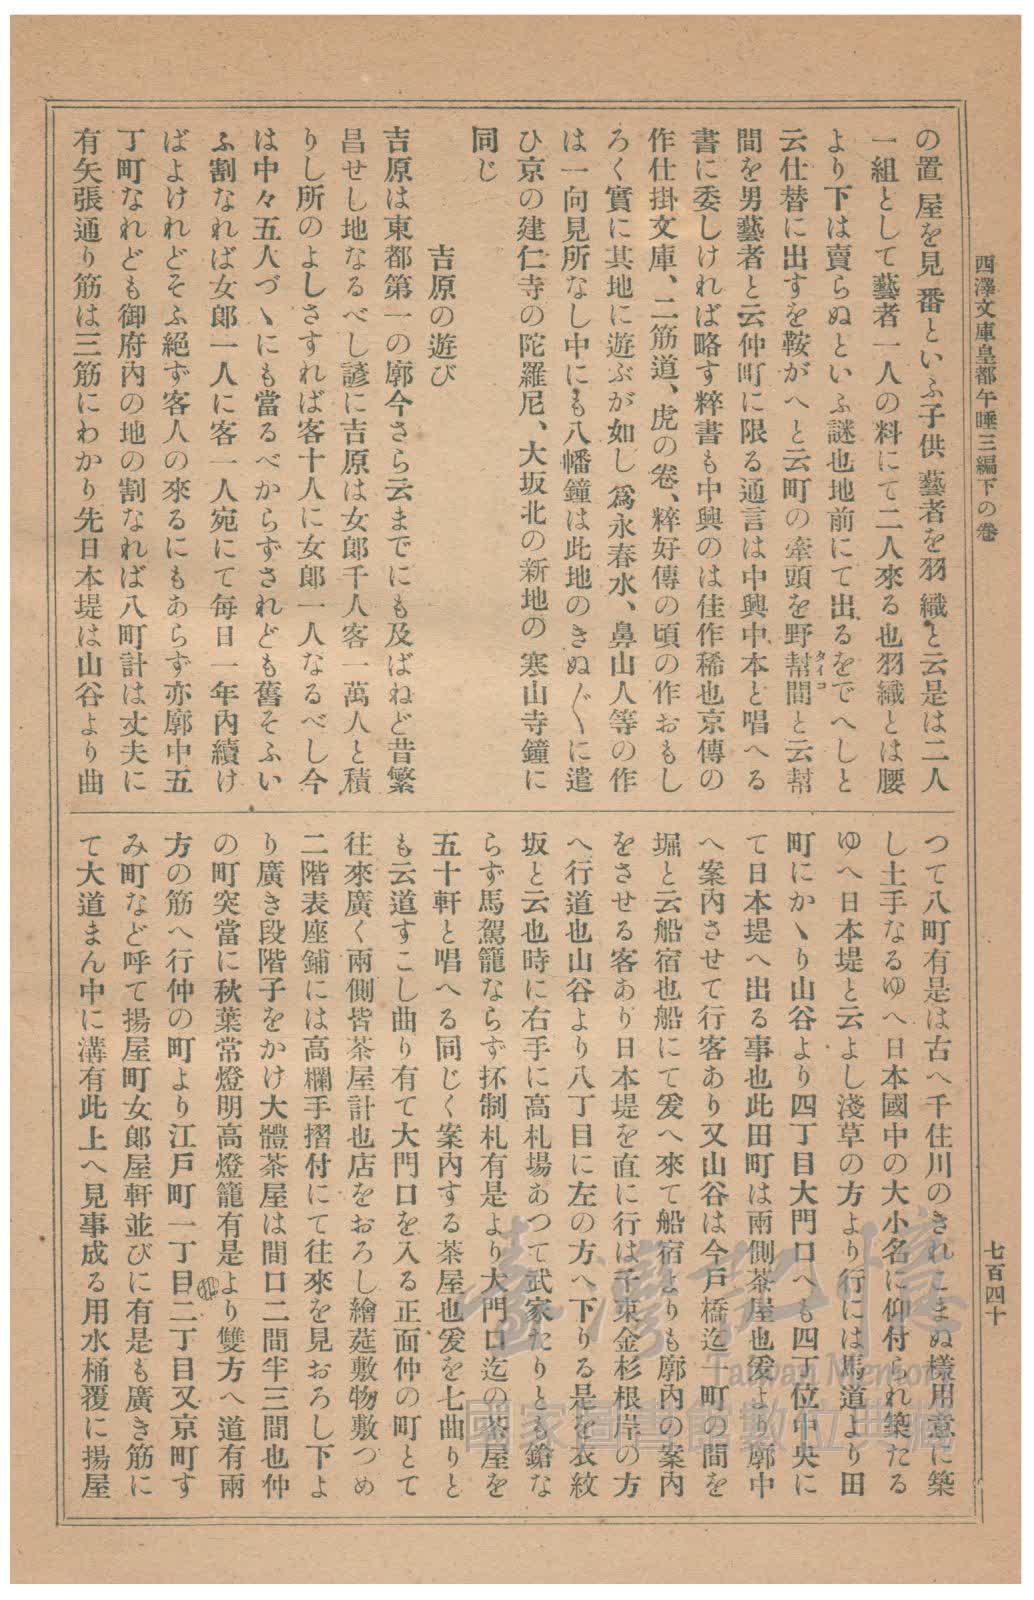 西澤文庫皇都午睡三編下の卷
七百四十
の置屋を見番といふ子供藝者を羽織と云是は二人
一組として藝者一人の料にて二人來る也羽織とは腰
より下は賣らぬといふ謎也地前にて出るをでへしと
云仕替に出すを鞍がへと云町の牽頭を野幇間と云幇
タイコ
間を男藝者と云仲町に限る通言は中興中本と唱へる
書に委しければ略す粹書も中興のは佳作稀也京傳の
作仕掛文庫、二筋道、虎の卷、粹好傳の頃の作おもし
ろく實に其地に遊ぶが如し爲永春水、鼻山人等の作
は一向見所なし中にも八幡鐘は此地のきぬ〴〵に遣
ひ京の建仁寺の陀羅尼、大坂北の新地の寒山寺鐘に
同じ
吉原の遊び
吉原は東都第一の廓今さら云までにも及ばねど昔繁
昌せし地なるべし諺に吉原は女郎千人客一萬人と積
りし所のよしさすれば客十人に女郎一人なるべし今
は中々五人づゝにも當るべからずされども舊そふい
ふ割なれば女郎一人に客一人宛にて毎日一年內續け
ばよけれどそふ絕ず客人の來るにもあらず亦廓中五
丁町なれども御府內の地の割なれば八町計は丈夫に
有矢張通り筋は三筋にわかり先日本堤は山谷より曲
つて八町有是は古へ千住川のきれこまぬ樣用意に築
し土手なるゆへ日本國中の大小名に仰付られ築たる
ゆへ日本堤と云よし淺草の方より行には馬道より田
町にかゝり山谷より四丁目大門口へも四丁位中央に
て日本堤へ出る事也此田町は兩側茶屋也爰より廓中
へ案內させて行客あり又山谷は今戶橋迄 町の間を
堀と云船宿也船にて爰へ來て船宿よりも廓內の案內
をさせる客あり日本堤を直に行は千束金杉根岸の方
へ行道也山谷より八丁目に左の方へ下りる是を衣紋
坂と云也時に右手に高札場あつて武家たりとも鎗な
らず馬駕籠ならず抔制札有是より大門口迄の茶屋を
五十軒と唱へる同じく案內する茶屋也爰を七曲りと
も云道すこし曲り有て大門口を入る正面仲の町とて
往來廣く兩側皆茶屋計也店をおろし繪莚敷物敷つめ
二階表座鋪には高欄手摺付にて往來を見おろし下よ
り廣き段階子をかけ大體茶屋は間口二間半三間也仲
の町突當に秋葉常燈明高燈籠有是より雙方へ道有兩
方の筋へ行仲の町より江戶町一丁目二丁目又京町す
み町など呼て揚屋町女郎屋軒並びに有是も廣き筋に
て大道まん中に溝有此上へ見事成る用水桶覆に揚屋
臺灣記憶
Taiwan Memory
國家圖書館數位典藏